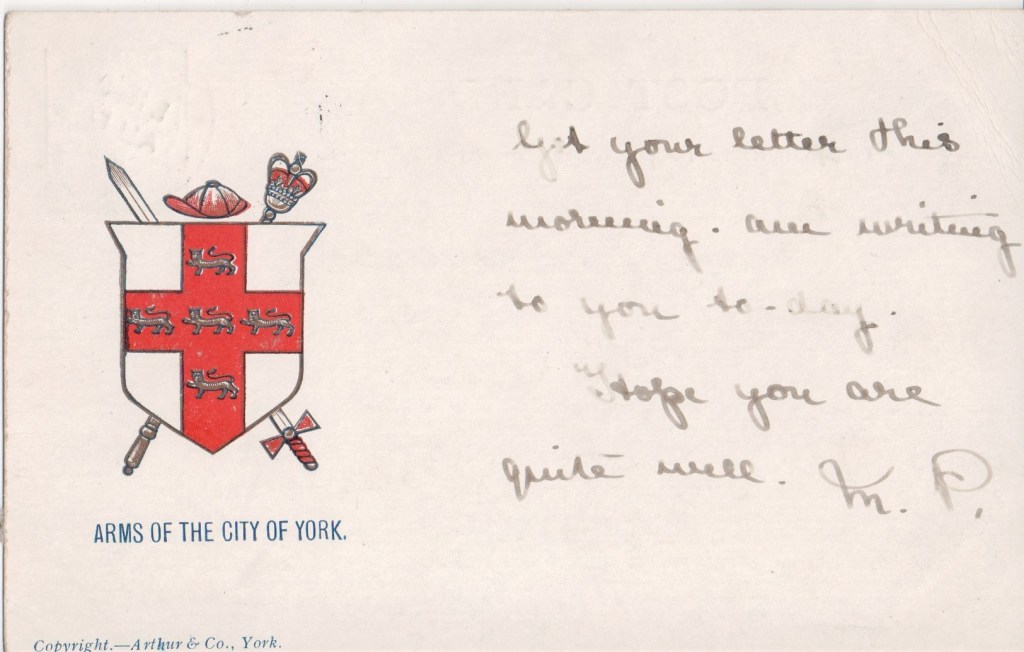 Got your letter this
morning. am writing
to you to-day.
Hope you are
quite well. M. P.
ARMS OF THE CITY OF YORK.
Copyright.—Arthur & Co., York.